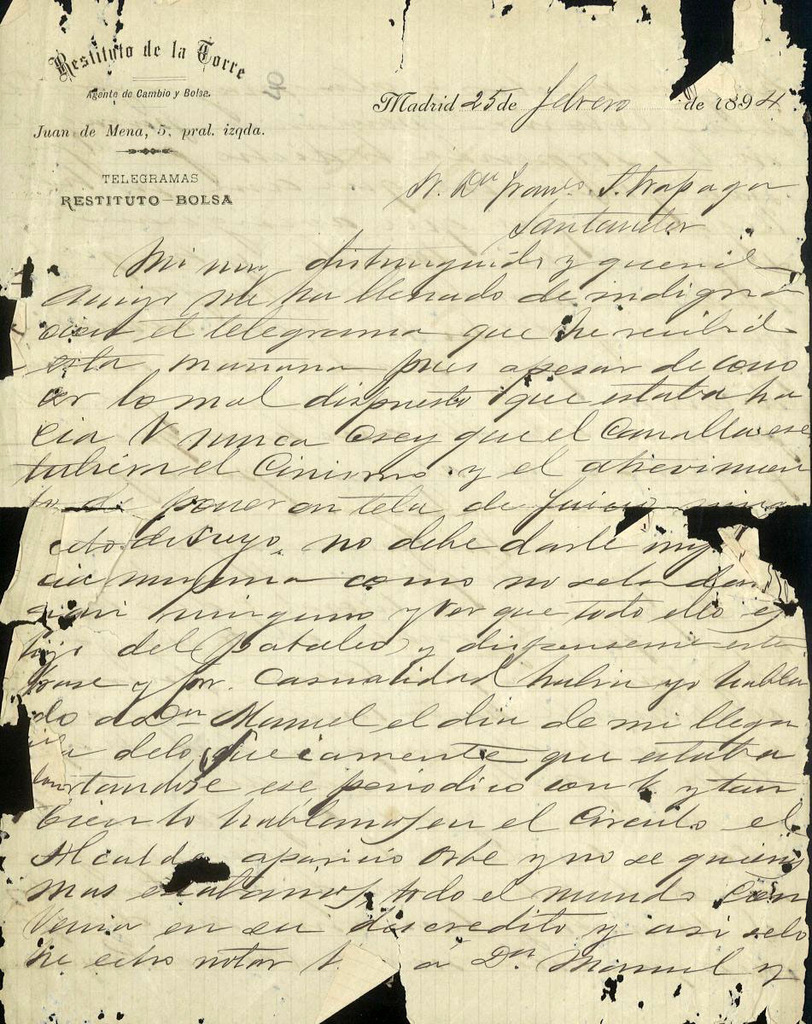 Restituto de la Torre
Agente de Cambio y Bolsa.
Juan de Mena, 5, pral. izqda.
TELEGRAMAS
RESTITUTO-BOLSA
40
Madrid 25 de febrero de 1894
Sr. Dn Franco S. Trapaga
Santander
Mi muy distinguido y querido
amigo me ha llenado de indigna
cion el telegrama que he recibido
esta mañana pues apesar de cono
cer lo mal dispuesto que estaba ha
cia V nunca crey que el Canalla ese
tubiera el Cinismo y el atrevimien
to de poner en tela de juicio
acto de suyo, no debe darle
cia ninguna como no se la dan
ninguno y por que todo ello es
hijo del pataleo y dispenseme esta
frase y por Casualidad habia yo habla
do a Dn Manuel el dia de mi llega
da de lo que estaba
portandose ese periodico con V. y tam
bien lo hablamos en el Circulo el
Alcalde aparicio Orbe y no se quienes
mas estabamos, todo el mundo Con
venia en su descredito y asi se lo
he echo notar a Dn Manuel y